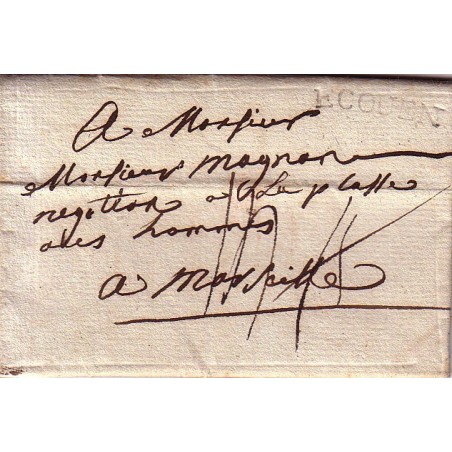 ECOUEN
A Monsieur
Monsieur magnan
negotian a la plasse
des hommes
a Marseille